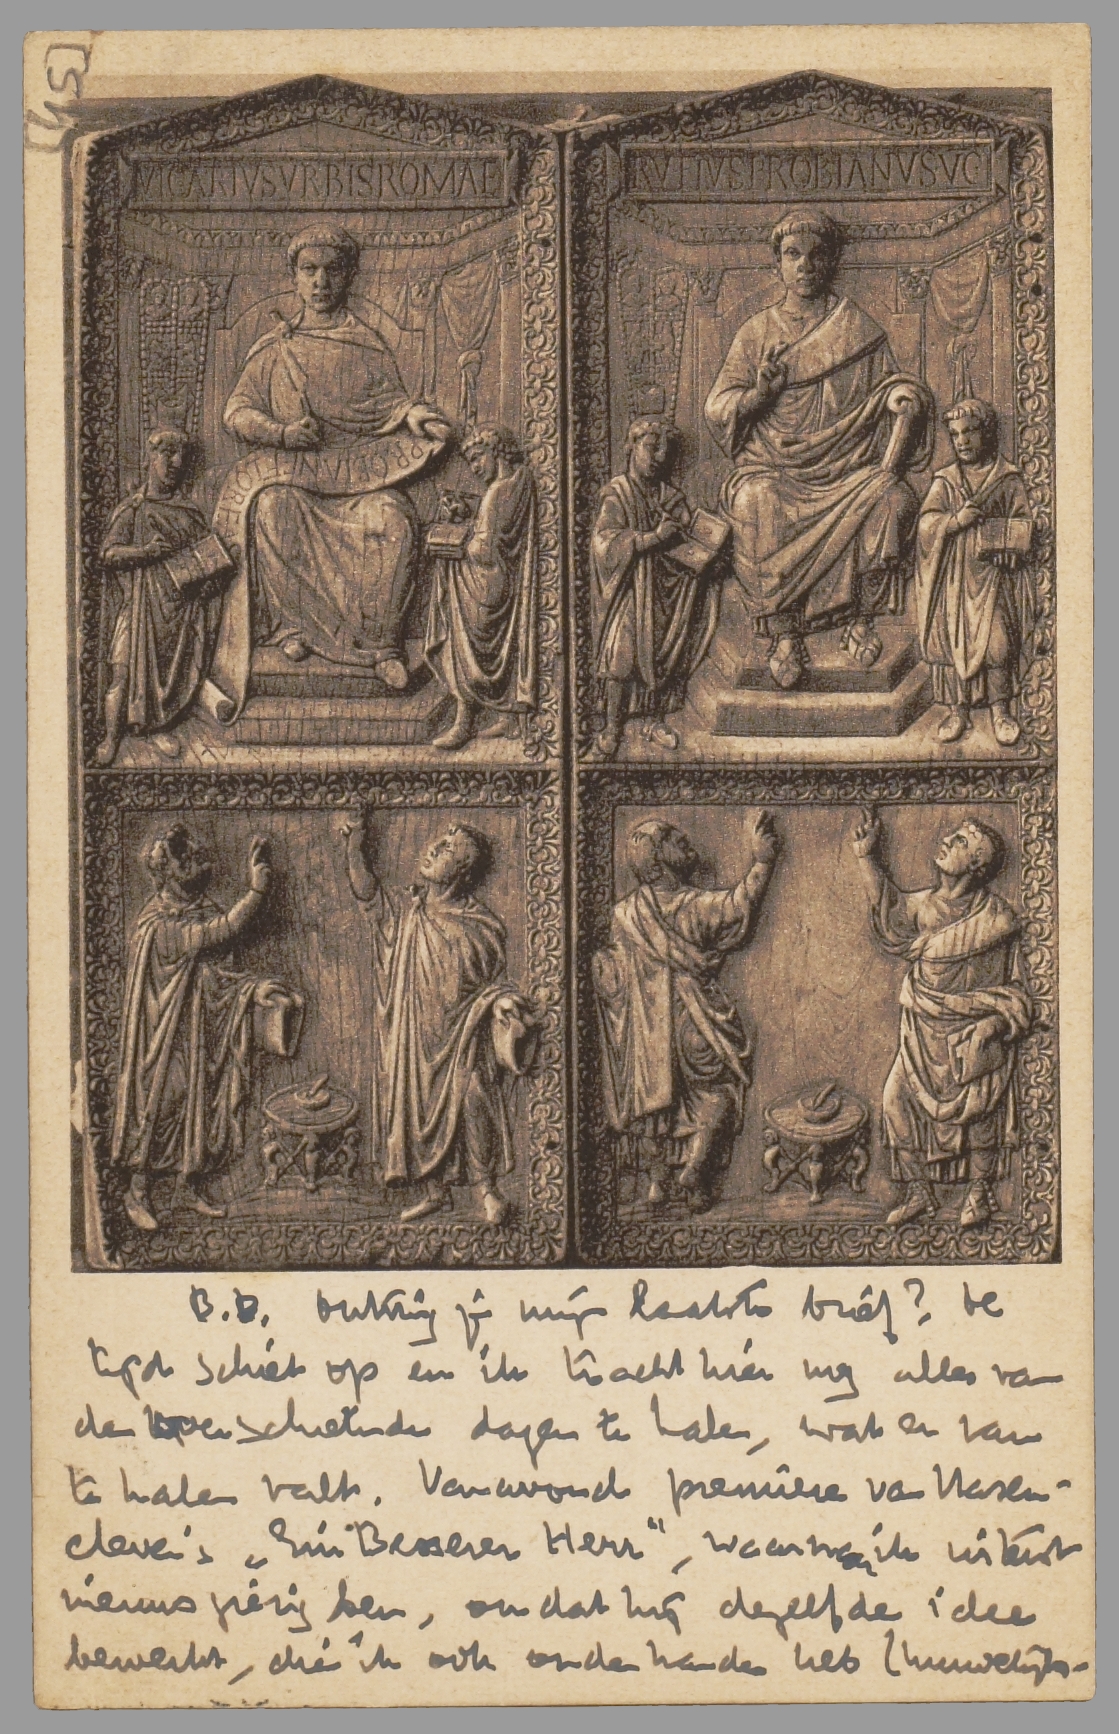 (45)
VICARIVSVRBISROMAE
RVFIVSPROBIANVSVC
PROBIANEFLOREAS
B.B. Ontving je mijn laatste brief? De
tijd schiet op en ik tracht hier nog alles van
de overschietende dagen te halen, wat er van
te halen valt. Vanavond première van Hasen-
clever's „Ein Besserer Herr", waarnaar ik uiterst
nieuwsgierig ben, omdat hij dezelfde idee
bewerkt, die ik ook onderhanden heb (huwelijks-